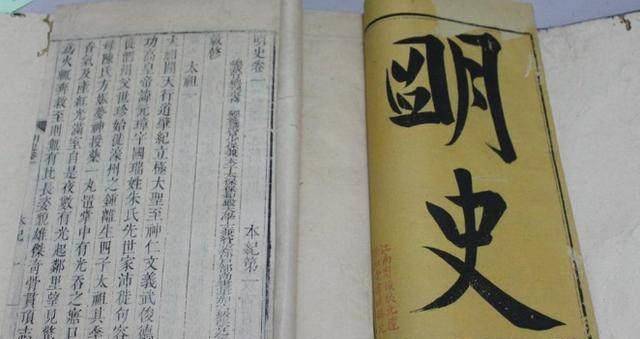 明史
明史卷一
本紀第一
敕修
太祖一
太祖開天行道肇紀立極大聖至神仁文義武俊德
功高皇帝諱元璋字國瑞姓朱氏先世家沛徙句容
徙泗州父世珍始徙濠州之鍾離生四子太祖其季
母陳氏方娠夢神授藥一丸置掌中有光吞之寤口
香氣及產紅光滿室自是夜數有光起鄰里望見驚
為火輒奔救至則無有比長姿貌雄傑奇骨貫頂志
本紀